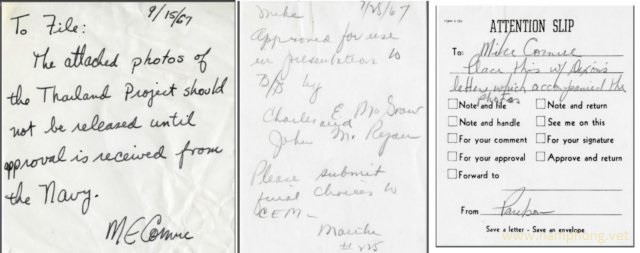 9/15/67
To File:
The attached photos of
the Thailand Project should
not be released until
approval is received from
the Navy.
Mike 7/25/67
Approved for use
in presentation to
by
Charles E.
and
John M.
Please submit
final choices to
CEM-
ATTENTION SLIP
To: Mike
Place this w/
letter which accompanied the
photos
Note and file Note and return
Note and handle See me on this
For your comment For your signature
For your approval Approve and return
Forward to
From
Save a letter - Save an envelope
www.namphong.vet